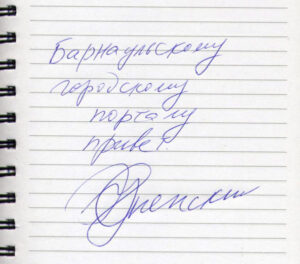 Барнаульскому
городскому
порталу
привет